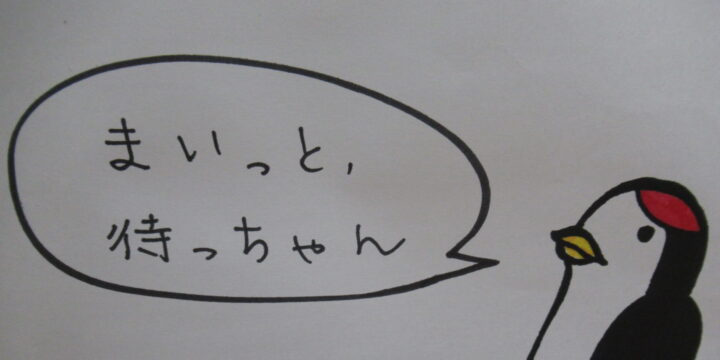 まいっと,
待っちゃん